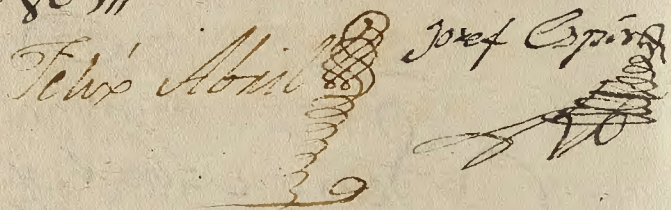 Felix Abril Josef Espin